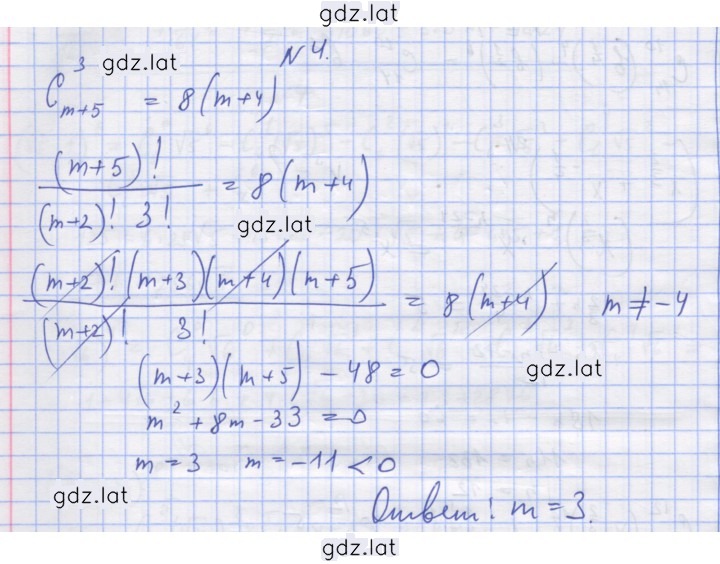 gdz.lat
N 4.
gdz.lat
C³ₘ₊₅ = 8(m+4)
(m+5)! / (m+2)! 3! = 8(m+4)
gdz.lat
(m+2)! (m+3)(m+4)(m+5) / (m+2)! 3! = 8(m+4) m ≠ -4
(m+3)(m+5) - 48 = 0
gdz.lat
m² + 8m - 33 = 0
m = 3 m = -11 < 0
gdz.lat
Ответ: m = 3.
gdz.lat